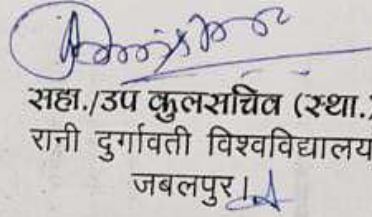 सहा./उप कुलसचिव (स्था.)
रानी दुर्गावती विश्वविद्यालय
जबलपुर।